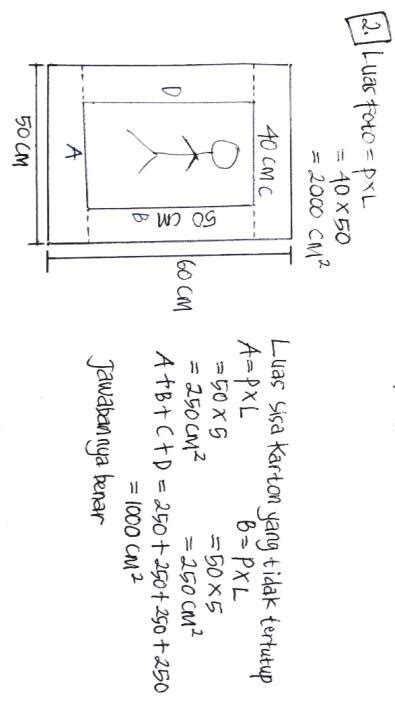 2. Luas foto = p x L
= 40 x 50
= 2000 cm²
50 cm
60 cm
A
B
40 cm C
D
50 cm
Luas sisa karton yang tidak tertutup
A = p x L
= 50 x 5
= 250 cm²
B = p x L
= 50 x 5
= 250 cm²
A + B + C + D = 250 + 250 + 250 + 250
= 1000 cm²
Jawabannya benar